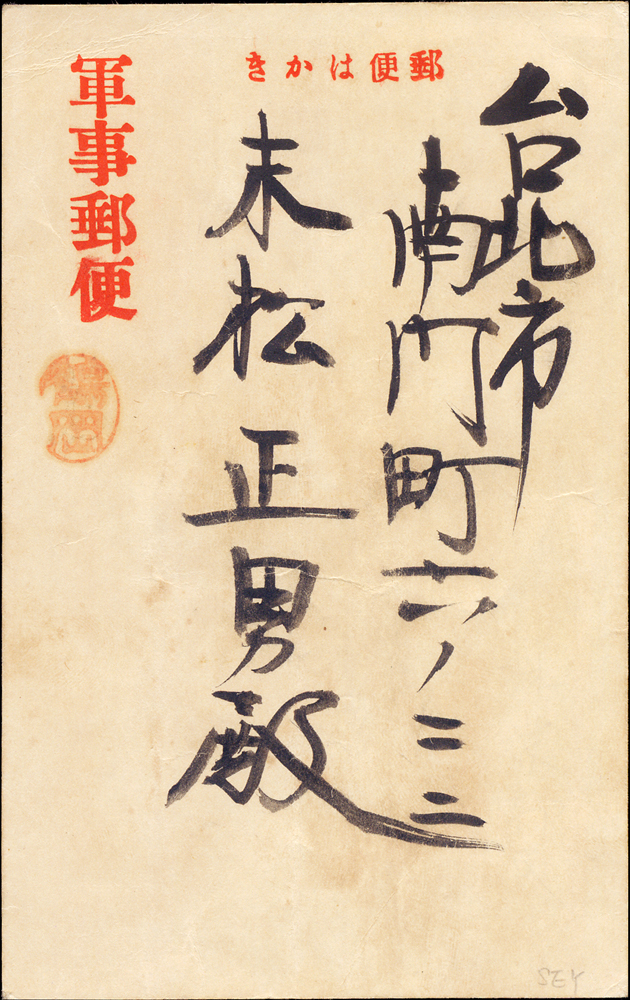 郵便はかき
台北市
南門町六ノ二二
末松正男殿
軍事郵便